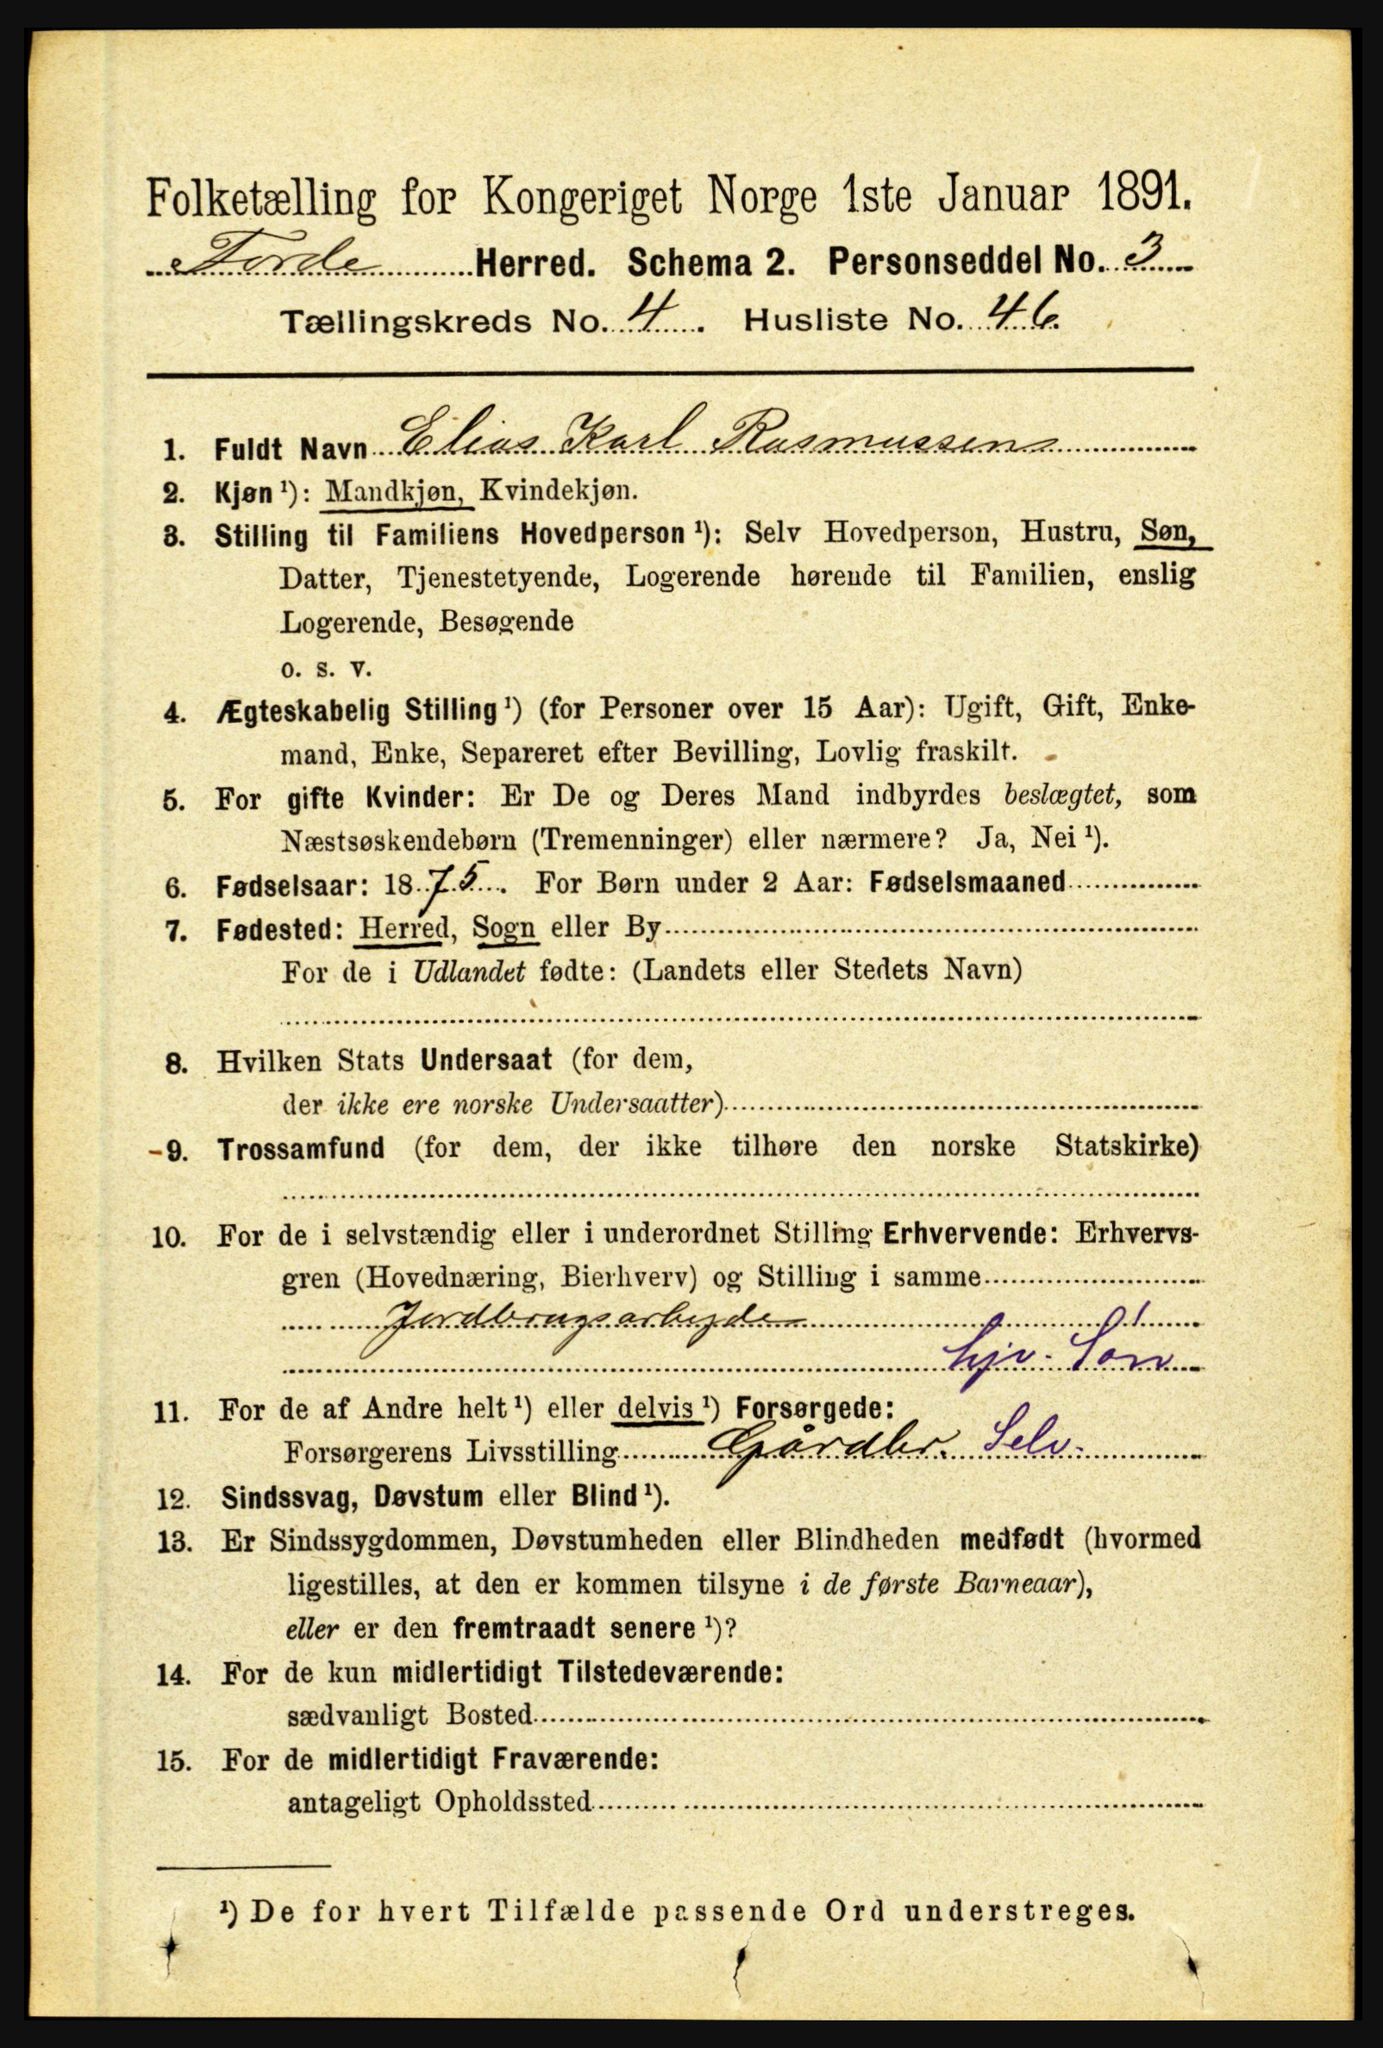 Folketælling for Kongeriget Norge 1ste Januar 1891.
Førde Herred. Schema 2. Personseddel No. 3
Tællingskreds No. 4. Husliste No. 46.
1. Fuldt Navn Elias Karl Rasmussens
2. Kjøn ¹): Mandkjøn, Kvindekjøn.
3. Stilling til Familiens Hovedperson ¹): Selv Hovedperson, Hustru, Søn,
Datter, Tjenestetyende, Logerende hørende til Familien, enslig
Logerende, Besøgende
o. s. v.
4. Ægteskabelig Stilling ¹) (for Personer over 15 Aar): Ugift, Gift, Enke-
mand, Enke, Separeret efter Bevilling, Lovlig fraskilt.
5. For gifte Kvinder: Er De og Deres Mand indbyrdes beslægtet, som
Næstsøskendebørn (Tremenninger) eller nærmere? Ja, Nei ¹).
6. Fødselsaar: 1875. For Børn under 2 Aar: Fødselsmaaned
7. Fødested: Herred, Sogn eller By
For de i Udlandet fødte: (Landets eller Stedets Navn)
8. Hvilken Stats Undersaat (for dem,
der ikke ere norske Undersaatter)
9. Trossamfund (for dem, der ikke tilhøre den norske Statskirke)
10. For de i selvstændig eller i underordnet Stilling Erhvervende: Erhvervs-
gren (Hovednæring, Bierhverv) og Stilling i samme
Jordbrugsarbeyde
hjv. Søn
11. For de af Andre helt ¹) eller delvis ¹) Forsørgede:
Forsørgerens Livsstilling Gårdbr. Selv.
12. Sindssvag, Døvstum eller Blind ¹).
13. Er Sindssygdommen, Døvstumheden eller Blindheden medfødt (hvormed
ligestilles, at den er kommen tilsyne i de første Barneaar),
eller er den fremtraadt senere ¹)?
14. For de kun midlertidigt Tilstedeværende:
sædvanligt Bosted
15. For de midlertidigt Fraværende:
antageligt Opholdssted
¹) De for hvert Tilfælde passende Ord understreges.